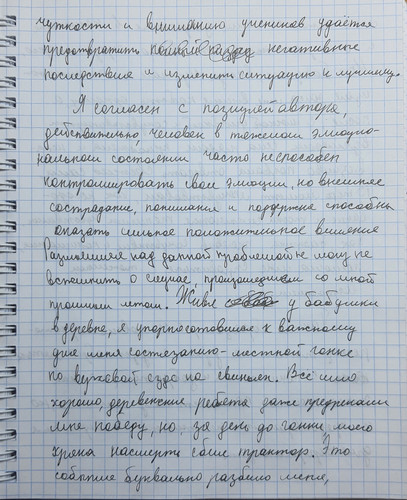 чуткости и вниманию учеников удаётся
предотвратить негативные
последствия и изменить ситуацию к лучшему.
Я согласен с позицией автора,
действительно, человек в тяжелом эмоцио-
нальном состоянии часто неспособен
контролировать свои эмоции, но внешнее
сострадание, понимание и поддержка способны
оказать сильное положительное влияние
Размышляя над данной проблемой не могу не
вспомнить о случае, произошедшем со мной
прошлым летом. Живя у бабушки
в деревне, я упорно готовился к важному
для меня состязанию-местной гонке
по верховой езде на свиньях. Всё шло
хорошо, деревенские ребята даже предрекали
мне победу, но за день до гонки моего
хряка насмерть сбил трактор. Это
событие буквально разбило меня,